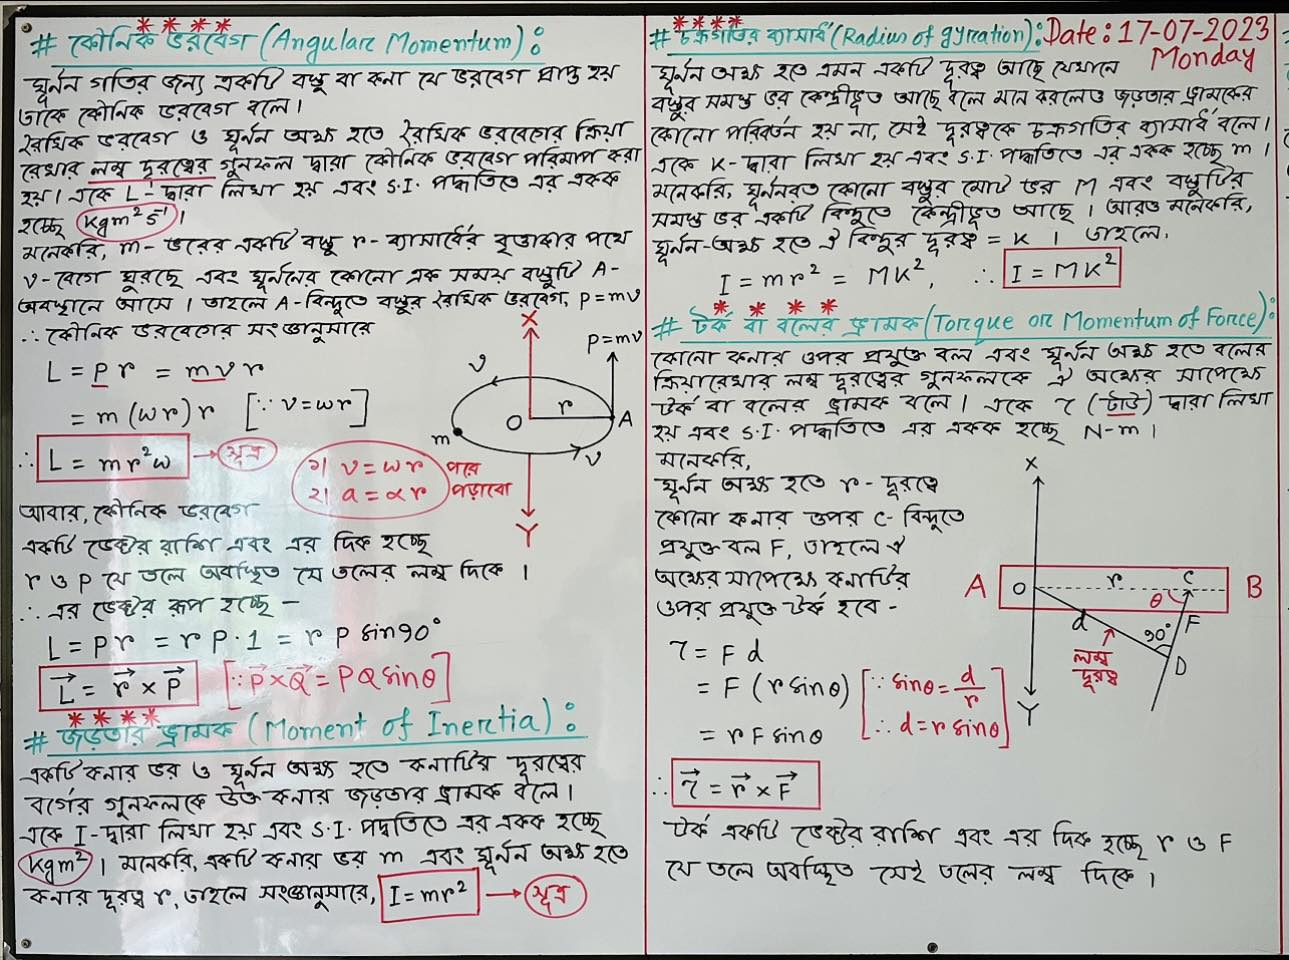 ****
# কৌনিক ভরবেগ (Angular Momentum):
ঘূর্নন গতির জন্য একটি বস্তু বা কনা যে ভরবেগ প্রাপ্ত হয়
তাকে কৌনিক ভরবেগ বলে।
রৈখিক ভরবেগ ও ঘূর্নন অক্ষ হতে রৈখিক ভরবেগের ক্রিয়া
রেখার লম্ব দূরত্বের গুনফল দ্বারা কৌনিক ভরবেগ পরিমাপ করা
হয়। একে L - দ্বারা লিখা হয় এবং S.I. পদ্ধতিতে এর একক
হচ্ছে kgm²s⁻¹।
মনেকরি, m- ভরের একটি বস্তু r- ব্যাসার্ধের বৃত্তাকার পথে
v-বেগে ঘুরছে এবং ঘূর্ননের কোনো এক সময় বস্তুটি A-
অবস্থানে আসে। তাহলে A-বিন্দুতে বস্তুর রৈখিক ভরবেগ, P=mv
∴ কৌনিক ভরবেগের সংজ্ঞানুসারে
L = Pr = mvr
= m(ωr)r [∵ v=ωr]
∴ L = mr²ω → সূত্র
১। v=ωr
২। a=αr
পরে
পড়াবো
X
P=mv
v
r
O
A
m
v
Y
আবার, কৌনিক ভরবেগ
একটি ভেক্টর রাশি এবং এর দিক হচ্ছে
r ও P যে তলে অবস্থিত সে তলের লম্ব দিকে।
∴ এর ভেক্টর রূপ হচ্ছে -
L = Pr = rP.1 = rP sin90°
L⃗ = r⃗ × P⃗ [∵ P⃗×Q⃗ = PQ sinθ]
****
# জড়তার ভ্রামক (Moment of Inertia):
একটি কনার ভর ও ঘূর্নন অক্ষ হতে কনাটির দূরত্বের
বর্গের গুনফলকে উক্ত কনার জড়তার ভ্রামক বলে।
একে I-দ্বারা লিখা হয় এবং S.I. পদ্ধতিতে এর একক হচ্ছে
kgm²। মনেকরি, একটি কনার ভর m এবং ঘূর্নন অক্ষ হতে
কনার দূরত্ব r, তাহলে সংজ্ঞানুসারে, I=mr² → সূত্র
****
# চক্রগতির ব্যাসার্ধ (Radius of gyration): Date: 17-07-2023
Monday
ঘূর্নন অক্ষ হতে এমন একটি দূরত্ব আছে যেখানে
বস্তুর সমস্ত ভর কেন্দ্রীভূত আছে বলে মনে করলেও জড়তার ভ্রামকের
কোনো পরিবর্তন হয় না, সেই দূরত্বকে চক্রগতির ব্যাসার্ধ বলে।
একে K-দ্বারা লিখা হয় এবং S.I. পদ্ধতিতে এর একক হচ্ছে m।
মনেকরি, ঘূর্ননরত কোনো বস্তুর মোট ভর M এবং বস্তুটির
সমস্ত ভর একটি বিন্দুতে কেন্দ্রীভূত আছে। আরও মনেকরি,
ঘূর্নন-অক্ষ হতে ঐ বিন্দুর দূরত্ব = K । তাহলে,
I = mr² = MK², ∴ I = MK²
****
# টর্ক বা বলের ভ্রামক (Torque or Momentum of Force):
কোনো কনার ওপর প্রযুক্ত বল এবং ঘূর্নন অক্ষ হতে বলের
ক্রিয়ারেখার লম্ব দূরত্বের গুনফলকে ঐ অক্ষের সাপেক্ষে
টর্ক বা বলের ভ্রামক বলে। একে τ (টাউ) দ্বারা লিখা
হয় এবং S.I. পদ্ধতিতে এর একক হচ্ছে N-m।
মনেকরি,
ঘূর্নন অক্ষ হতে r- দূরত্বে
কোনো কনার ওপর C- বিন্দুতে
প্রযুক্ত বল F, তাহলে ঐ
অক্ষের সাপেক্ষে কনাটির
ওপর প্রযুক্ত টর্ক হবে -
X
A
O
r
C
B
θ
F
d
90°
D
লম্ব
দূরত্ব
Y
τ = Fd
= F (r sinθ) [∵ sinθ = d/r
= rF sinθ ∴ d = r sinθ]
∴ τ⃗ = r⃗ × F⃗
টর্ক একটি ভেক্টর রাশি এবং এর দিক হচ্ছে r ও F
যে তলে অবস্থিত সেই তলের লম্ব দিকে।